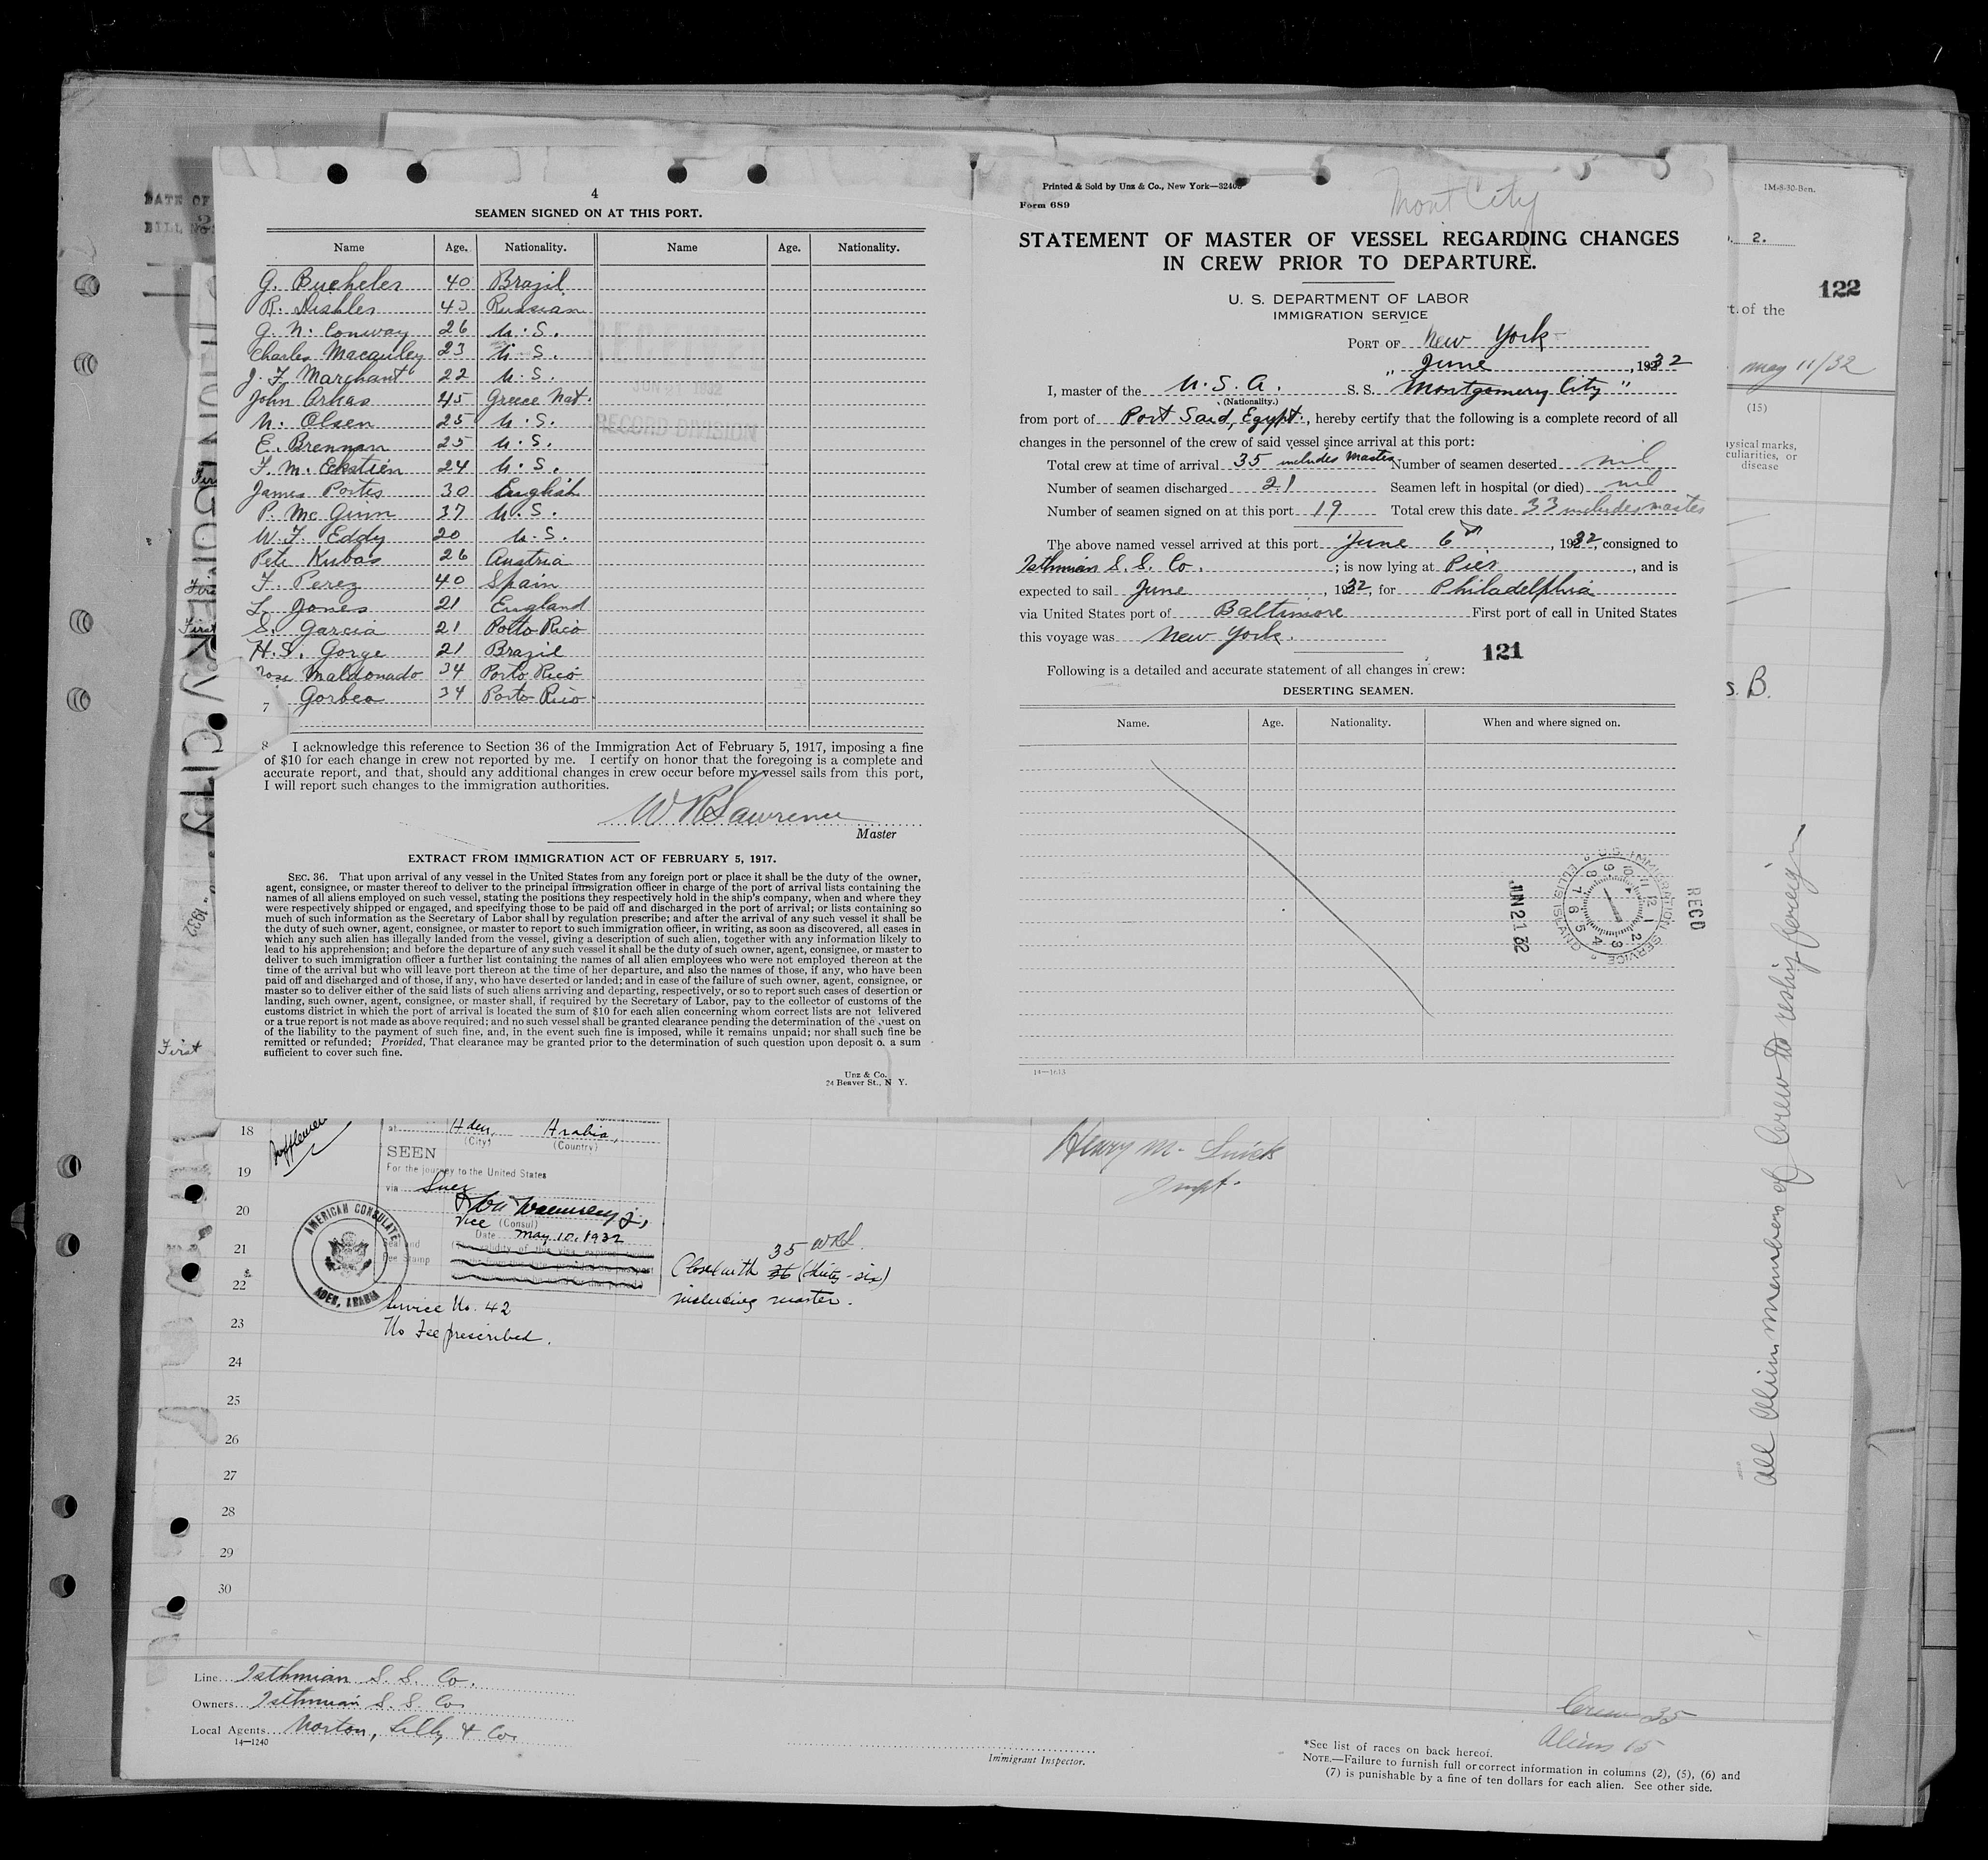 4
SEAMEN SIGNED ON AT THIS PORT.
Name Age. Nationality. Name Age. Nationality.
G. Bucheler 40 Brazil
R. Dishler 43 Russian
G. N. Conway 26 U.S.
Charles Macauley 23 U.S.
J. F. Marchant 22 U.S.
John Arhas 45 Greece Nat.
N. Olsen 25 U.S.
E. Brennan 25 U.S.
F. M. Eckstien 24 U.S.
James Portes 30 English
P. Mc Gunn 37 U.S.
W. F. Eddy 20 U.S.
Pete Kubas 26 Austria
F. Perez 40 Spain
L. Jones 21 England
S. Garcia 21 Potto Rico
H. S. Gorge 21 Brazil
Jose Maldonado 34 Porto Rico
Gorbea 34 Porto Rico
7
RECEIVED
JUN 21 1932
RECORD DIVISION
8 I acknowledge this reference to Section 36 of the Immigration Act of February 5, 1917, imposing a fine
of $10 for each change in crew not reported by me. I certify on honor that the foregoing is a complete and
accurate report, and that, should any additional changes in crew occur before my vessel sails from this port,
I will report such changes to the immigration authorities.
W R Lawrence
Master
EXTRACT FROM IMMIGRATION ACT OF FEBRUARY 5, 1917.
SEC. 36. That upon arrival of any vessel in the United States from any foreign port or place it shall be the duty of the owner,
agent, consignee, or master thereof to deliver to the principal immigration officer in charge of the port of arrival lists containing the
names of all aliens employed on such vessel, stating the positions they respectively hold in the ship's company, when and where they
were respectively shipped or engaged, and specifying those to be paid off and discharged in the port of arrival; or lists containing so
much of such information as the Secretary of Labor shall by regulation prescribe; and after the arrival of any such vessel it shall be
the duty of such owner, agent, consignee, or master to report to such immigration officer, in writing, as soon as discovered, all cases in
which any such alien has illegally landed from the vessel, giving a description of such alien, together with any information likely to
lead to his apprehension; and before the departure of any such vessel it shall be the duty of such owner, agent, consignee, or master to
deliver to such immigration officer a further list containing the names of all alien employees who were not employed thereon at the
time of the arrival but who will leave port thereon at the time of her departure, and also the names of those, if any, who have been
paid off and discharged and of those, if any, who have deserted or landed; and in case of the failure of such owner, agent, consignee, or
master so to deliver either of the said lists of such aliens arriving and departing, respectively, or so to report such cases of desertion or
landing, such owner, agent, consignee, or master shall, if required by the Secretary of Labor, pay to the collector of customs of the
customs district in which the port of arrival is located the sum of $10 for each alien concerning whom correct lists are not delivered
or a true report is not made as above required; and no such vessel shall be granted clearance pending the determination of the quest on
of the liability to the payment of such fine, and, in the event such fine is imposed, while it remains unpaid; nor shall such fine be
remitted or refunded; Provided, That clearance may be granted prior to the determination of such question upon deposit o. a sum
sufficient to cover such fine.
Unz & Co.
24 Beaver St., N Y.
Printed & Sold by Unz & Co., New York—32406
Form 689
Mont City
STATEMENT OF MASTER OF VESSEL REGARDING CHANGES
IN CREW PRIOR TO DEPARTURE.
U. S. DEPARTMENT OF LABOR
IMMIGRATION SERVICE
PORT OF New York
June, 1932
I, master of the U.S.A. S. S. Montgomery City "
(Nationality.)
from port of Port Said, Egypt., hereby certify that the following is a complete record of all
changes in the personnel of the crew of said vessel since arrival at this port:
Total crew at time of arrival 35 includes Master Number of seamen deserted nil
Number of seamen discharged 21 Seamen left in hospital (or died) nil
Number of seamen signed on at this port 19 Total crew this date 33 includes master
The above named vessel arrived at this port June 6th, 1932, consigned to
Isthmian S. S. Co.; is now lying at Pier, and is
expected to sail June, 1932, for Philadelphia
via United States port of Baltimore First port of call in United States
this voyage was New York.
121
Following is a detailed and accurate statement of all changes in crew:
DESERTING SEAMEN.
Name. Age. Nationality. When and where signed on.
JUN 21 32
U.S. IMMIGRATION SERVICE ELLIS ISLAND
RECD
14—1613
1M-8-30-Ben.
2.
122
rt. of the
May 11/32
(15)
ysical marks,
culiarities, or
disease
s. B.
All Alien members of Crew to reship foreign
DATE OF
First
First
First
18
19
20
21
22
23
24
25
26
27
28
29
30
at Aden, Arabia,
(City) (Country)
SEEN
For the journey to the United States
via Suez
Vice (Consul)
Date May 10, 1932
AMERICAN CONSULATE
ADEN, ARABIA
Service No. 42
No Fee prescribed.
35 WRL
Closed with 36 (thirty-six)
including master.
Henry M.
Inspt.
Line Isthmian S. S. Co.
Owners Isthmian S. S. Co
Local Agents Norton, Lilly & Co
14—1240
Immigrant Inspector.
Crew 35
Aliens 15
*See list of races on back hereof.
NOTE.—Failure to furnish full or correct information in columns (2), (5), (6) and
(7) is punishable by a fine of ten dollars for each alien. See other side.